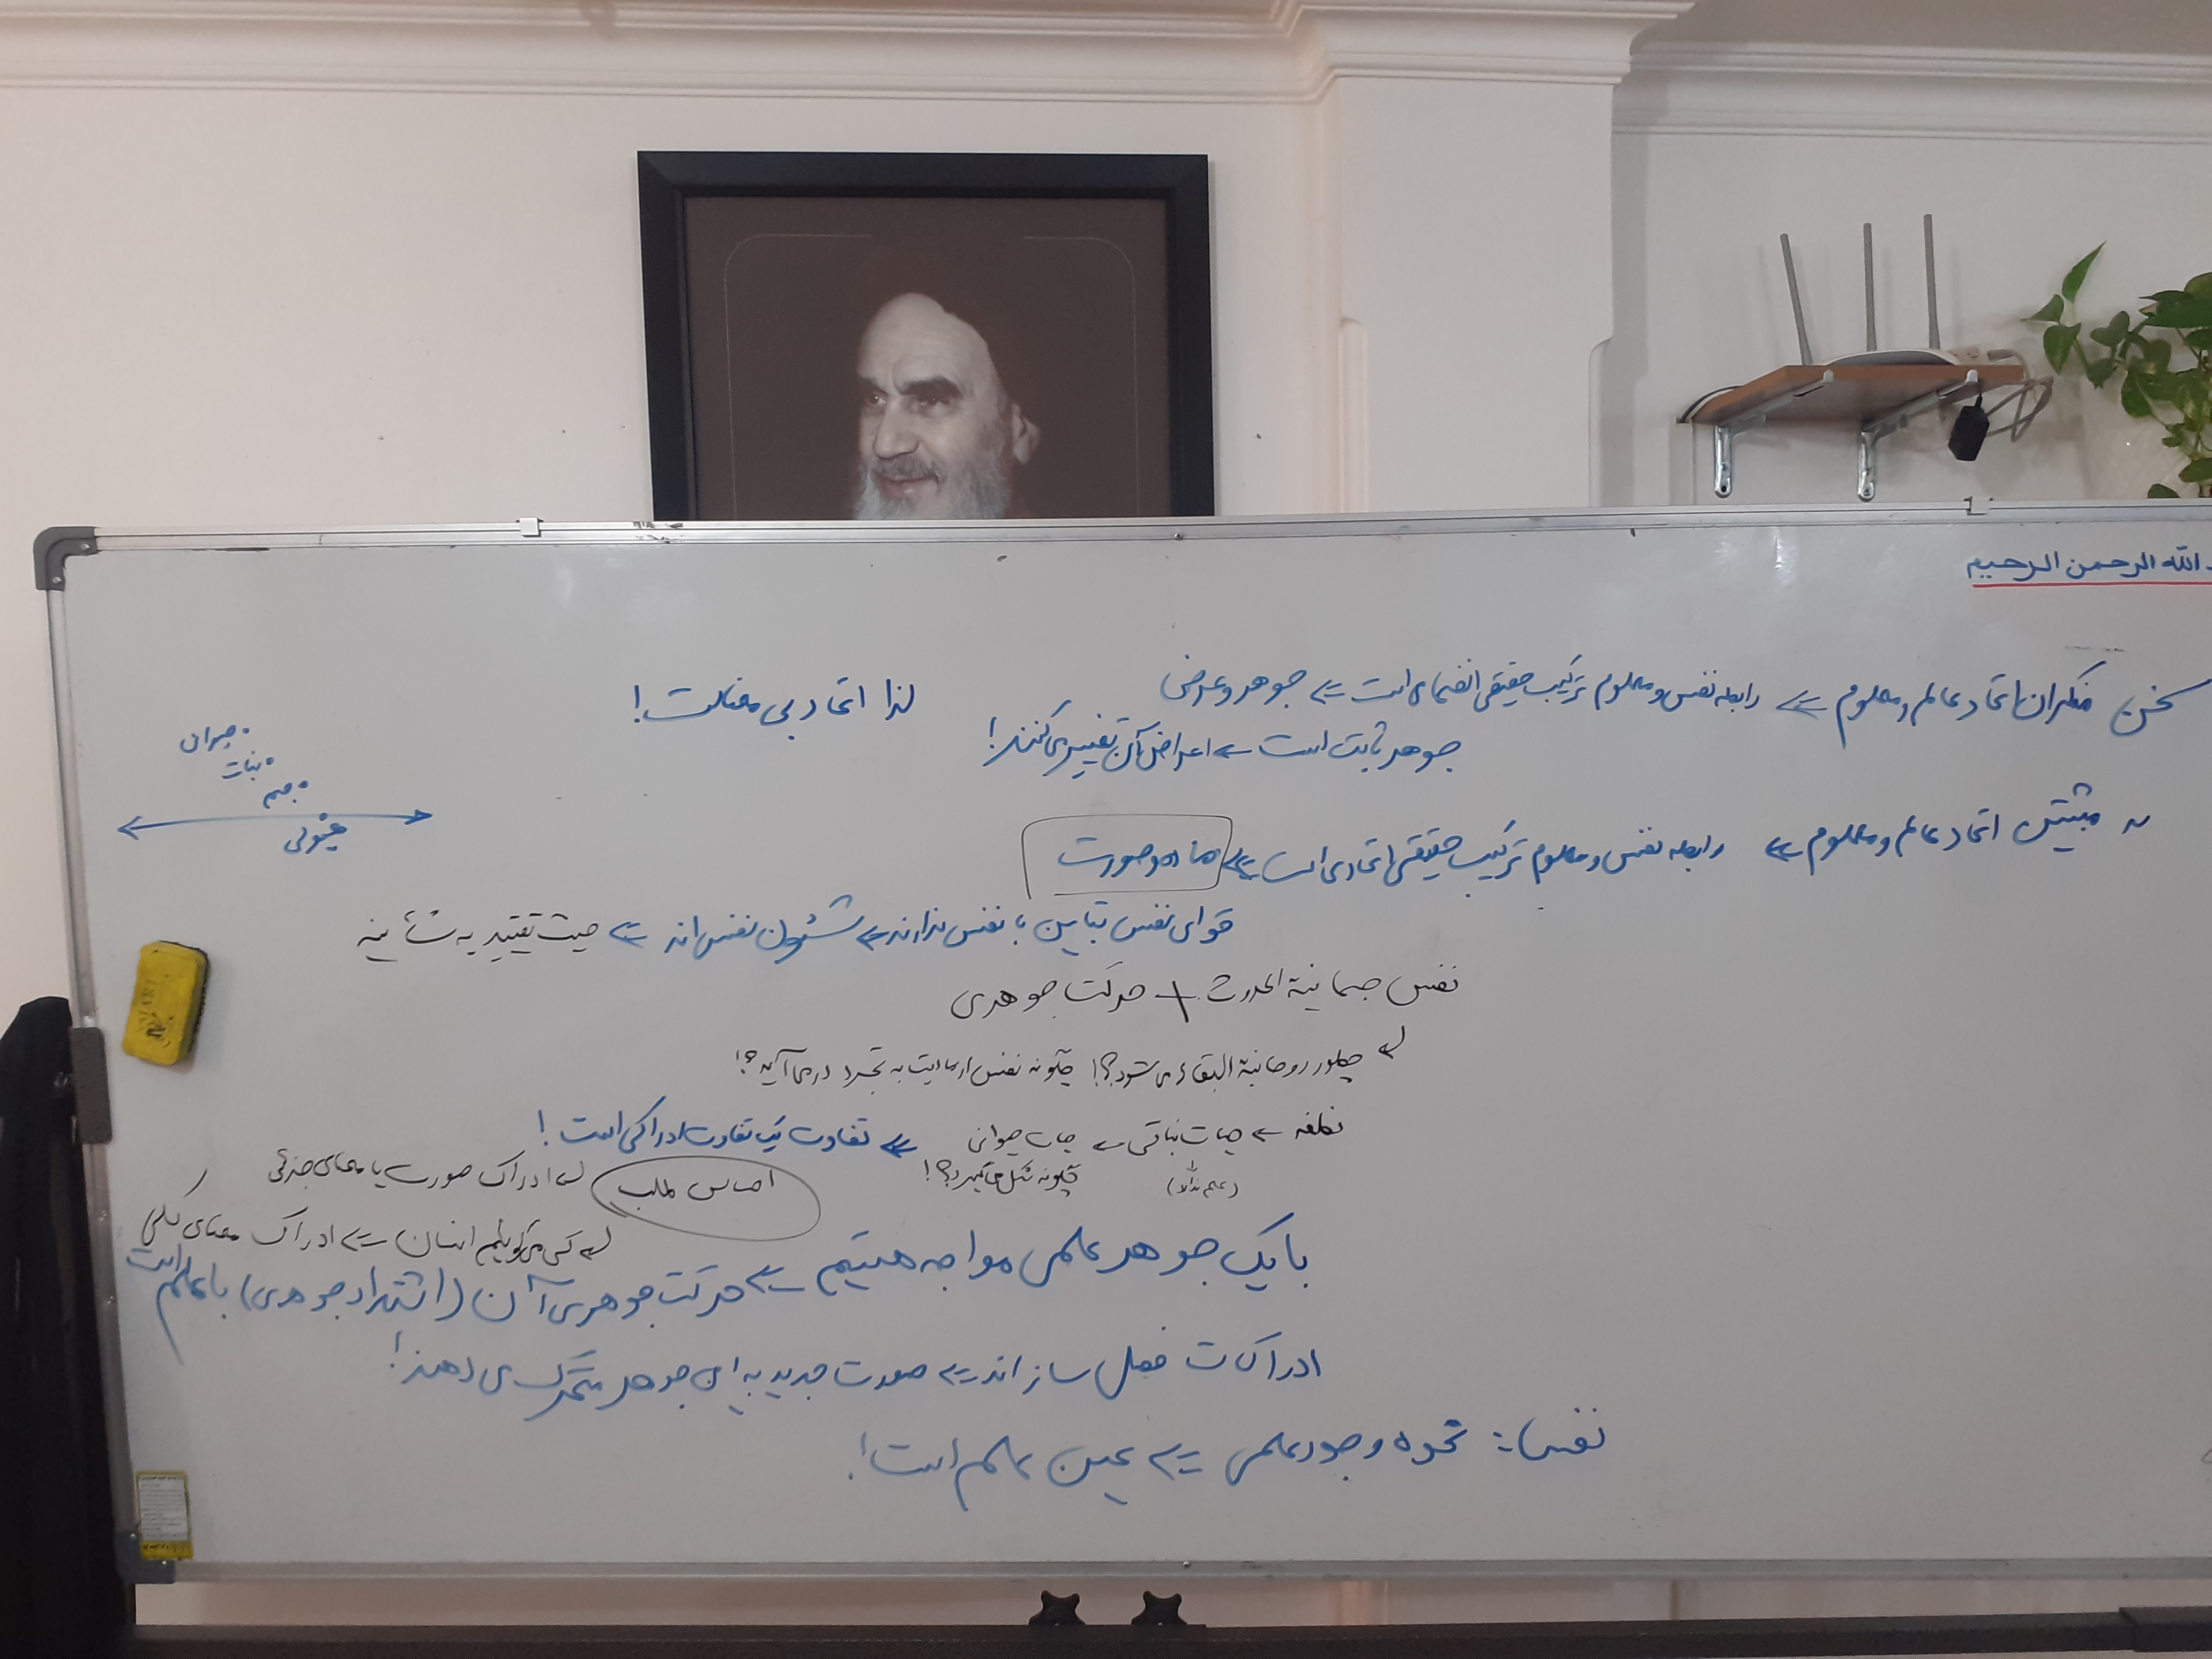 الله الرحمن الرحیم
سخن منکران اتحاد عالم و معلوم ⇐ رابطه نفس و معلوم ترکیب حقیقی انضمامی است ⇐ جوهر و عرض
جوهر ثابت است ← اعراض آن تغییر می‌کنند!
لذا اتحاد بی معناست!
حیوان
نبات
جسم
هیولی
مثبتین اتحاد عالم و معلوم ⇐ رابطه نفس و معلوم ترکیب حقیقی اتحادی است ⇐ ماده و صورت
قوای نفس تباین با نفس ندارند ⇐ شئون نفس اند ⇐ حیث تقییدیه شأنیه
نفس جسمانیة الحدوث + حرکت جوهری
چطور روحانیة البقاء می‌شود؟! چگونه نفس از مادیت به تجرد در می‌آید؟!
نطفه ← حیات نباتی ← حیات حیوانی ⇐ تفاوت یک تفاوت ادراکی است!
(علم ندارد)
چگونه شکل می‌گیرد؟!
احساس طلب
ادراک صورت یا معنای جزئی
کی می‌گوییم انسان ⇐ ادراک معنای کلی
با یک جوهر علمی مواجه هستیم ⇐ حرکت جوهری آن (اشتداد جوهری) با علم است
ادراکات فصل ساز اند ⇐ صورت جدید به این جوهر متحرک می‌دهند!
نفس: نحوه وجود علمی ⇐ عین علم است!